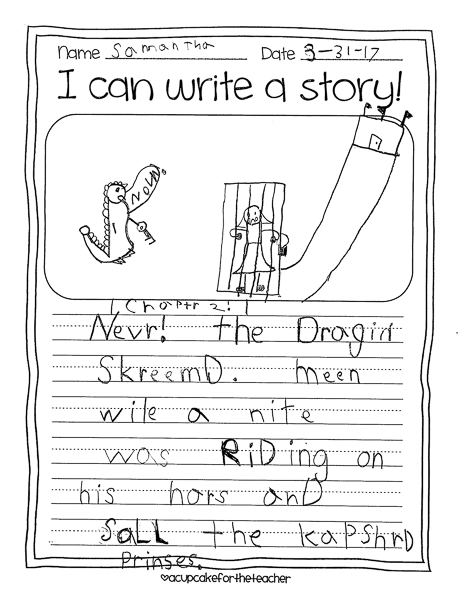 Name Samantha Date 3-31-17
I can write a story!
Nevr.
Chaptr 2!
Nevr! the Dragin
SkreemD. meen
wile a nite
was RiDing on
his hors anD
SaLL the kapshrD
Prinses.
♥acupcakefortheteacher